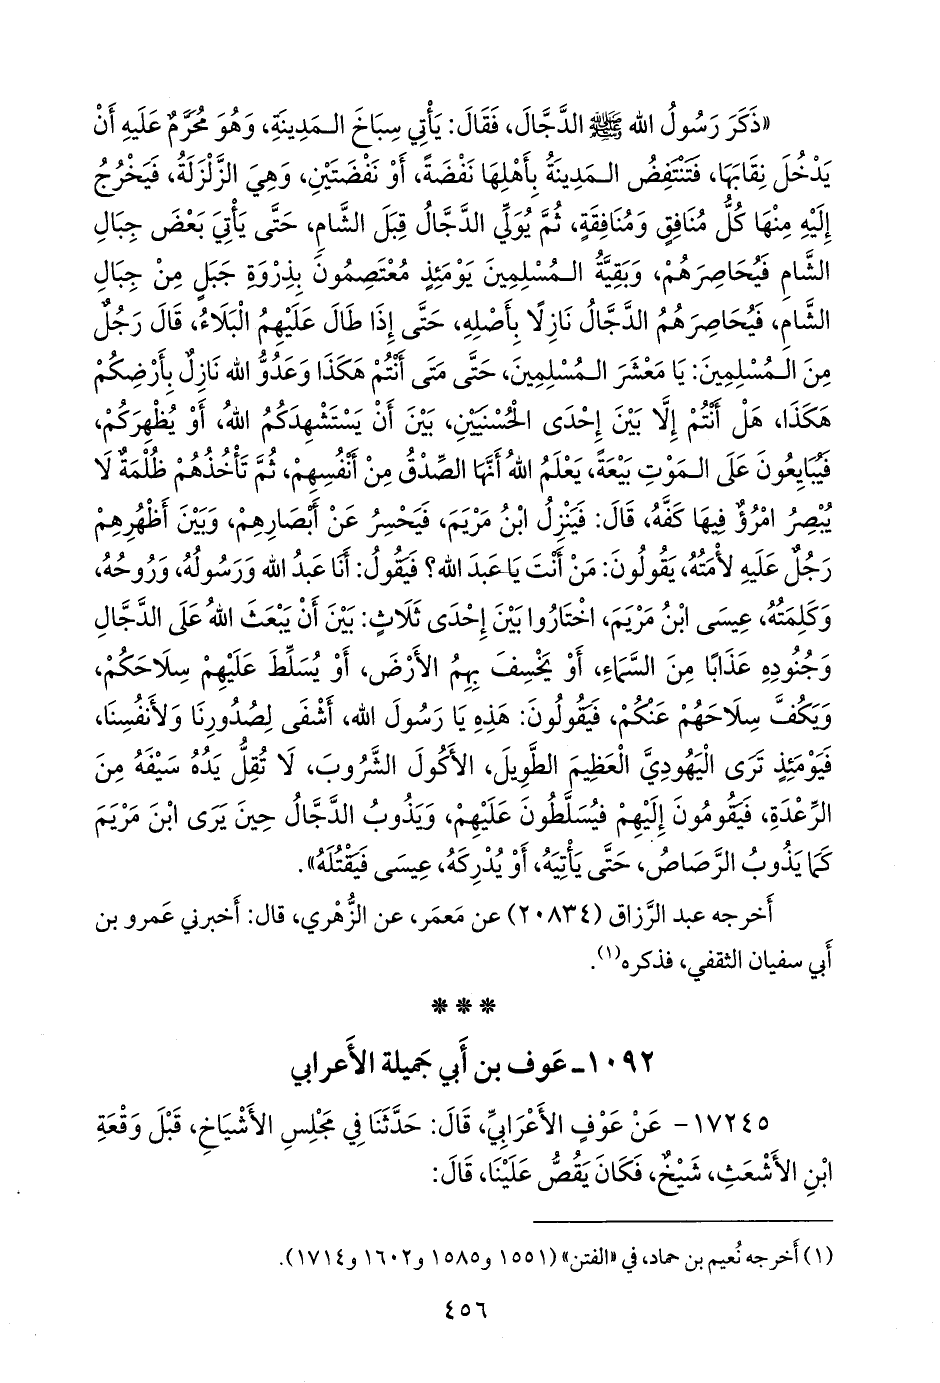 «ذَكَرَ رَسُولُ الله ﷺ الدَّجَّالَ، فَقَالَ: يَأْتِي سِبَاخَ الْمَدِينَةِ، وَهُوَ مُحَرَّمٌ عَلَيهِ أَنْ
يَدْخُلَ نِقَابَهَا، فَتَنْتَفِضُ الْمَدِينَةُ بِأَهْلِهَا نَفْضَةً، أَوْ نَفْضَتَيْنِ، وَهِيَ الزَّلْزَلَةُ، فَيَخْرُجُ
إِلَيْهِ مِنْهَا كُلُّ مُنَافِقٍ وَمُنَافِقَةٍ، ثُمَّ يُوَلِّي الدَّجَّالُ قِبَلَ الشَّامِ، حَتَّى يَأْتِيَ بَعْضَ جِبَالِ
الشَّامِ فَيُحَاصِرَهُمْ، وَبَقِيَّةُ الْمُسْلِمِينَ يَوْمَئِذٍ مُعْتَصِمُونَ بِذِرْوَةِ جَبَلٍ مِنْ جِبَالِ
الشَّامِ، فَيُحَاصِرَهُمُ الدَّجَّالُ نَازِلًا بِأَصْلِهِ، حَتَّى إِذَا طَالَ عَلَيْهِمُ الْبَلَاءُ، قَالَ رَجُلٌ
مِنَ الْمُسْلِمِينَ: يَا مَعْشَرَ الْمُسْلِمِينَ، حَتَّى مَتَى أَنْتُمْ هَكَذَا وَعَدُوُّ الله نَازِلٌ بِأَرْضِكُمْ
هَكَذَا، هَلْ أَنْتُمْ إِلَّا بَيْنَ إِحْدَى الْحُسْنَيَيْنِ، بَيْنَ أَنْ يَسْتَشْهِدَكُمُ اللهُ، أَوْ يُظْهِرَكُمْ،
فَيُبَايِعُونَ عَلَى الْمَوْتِ بَيْعَةً، يَعْلَمُ اللهُ أَنَّهَا الصِّدْقُ مِنْ أَنْفُسِهِمْ، ثُمَّ تَأْخُذُهُمْ ظُلْمَةٌ لَا
يُبْصِرُ امْرُؤٌ فِيهَا كَفَّهُ، قَالَ: فَيَنْزِلُ ابْنُ مَرْيَمَ، فَيَحْسِرُ عَنْ أَبْصَارِهِمْ، وَبَيْنَ أَظْهُرِهِمْ
رَجُلٌ عَلَيهِ لأْمَتُهُ، يَقُولُونَ: مَنْ أَنْتَ يَا عَبدَ الله؟ فَيَقُولُ: أَنَا عَبدُ الله وَرَسُولُهُ، وَرُوحُهُ،
وَكَلِمَتُهُ، عِيسَى ابْنُ مَرْيَمَ، اخْتَارُوا بَيْنَ إِحْدَى ثَلَاثٍ: بَيْنَ أَنْ يَبْعَثَ اللهُ عَلَى الدَّجَّالِ
وَجُنُودِهِ عَذَابًا مِنَ السَّمَاءِ، أَوْ يَخْسِفَ بِهِمُ الأَرْضَ، أَوْ يُسَلِّطَ عَلَيْهِمْ سِلَاحَكُمْ،
وَيَكُفَّ سِلَاحَهُمْ عَنْكُمْ، فَيَقُولُونَ: هَذِهِ يَا رَسُولَ الله، أَشْفَى لِصُدُورِنَا وَلأَنْفُسِنَا،
فَيَوْمَئِذٍ تَرَى الْيَهُودِيَّ الْعَظِيمَ الطَّوِيلَ، الأَكُولَ الشَّرُوبَ، لَا تُقِلُّ يَدُهُ سَيْفَهُ مِنَ
الرِّعْدَةِ، فَيَقُومُونَ إِلَيْهِمْ فَيُسَلَّطُونَ عَلَيْهِمْ، وَيَذُوبُ الدَّجَّالُ حِينَ يَرَى ابْنَ مَرْيَمَ
كَمَا يَذُوبُ الرَّصَاصُ، حَتَّى يَأْتِيَهُ، أَوْ يُدْرِكَهُ، عِيسَى فَيَقْتُلَهُ».
أَخرجه عبد الرَّزاق (٢٠٨٣٤) عن مَعمَر، عن الزُّهْري، قال: أَخبرني عَمرو بن
أَبي سفيان الثقفي، فذكره(١).
* * *
١٠٩٢- عَوف بن أَبي جَميلة الأَعرابي
١٧٢٤٥- عَنْ عَوْفٍ الأَعْرَابِيِّ، قَالَ: حَدَّثَنَا فِي مَجْلِسِ الأَشْيَاخِ، قَبْلَ وَقْعَةِ
ابْنِ الأَشْعَثِ، شَيْخٌ، فَكَانَ يَقُصُّ عَلَيْنَا، قَالَ:
(١) أَخرجه نُعيم بن حماد، في «الفتن» (١٥٥١ و١٥٨٥ و١٦٠٢ و١٧١٤).
٤٥٦